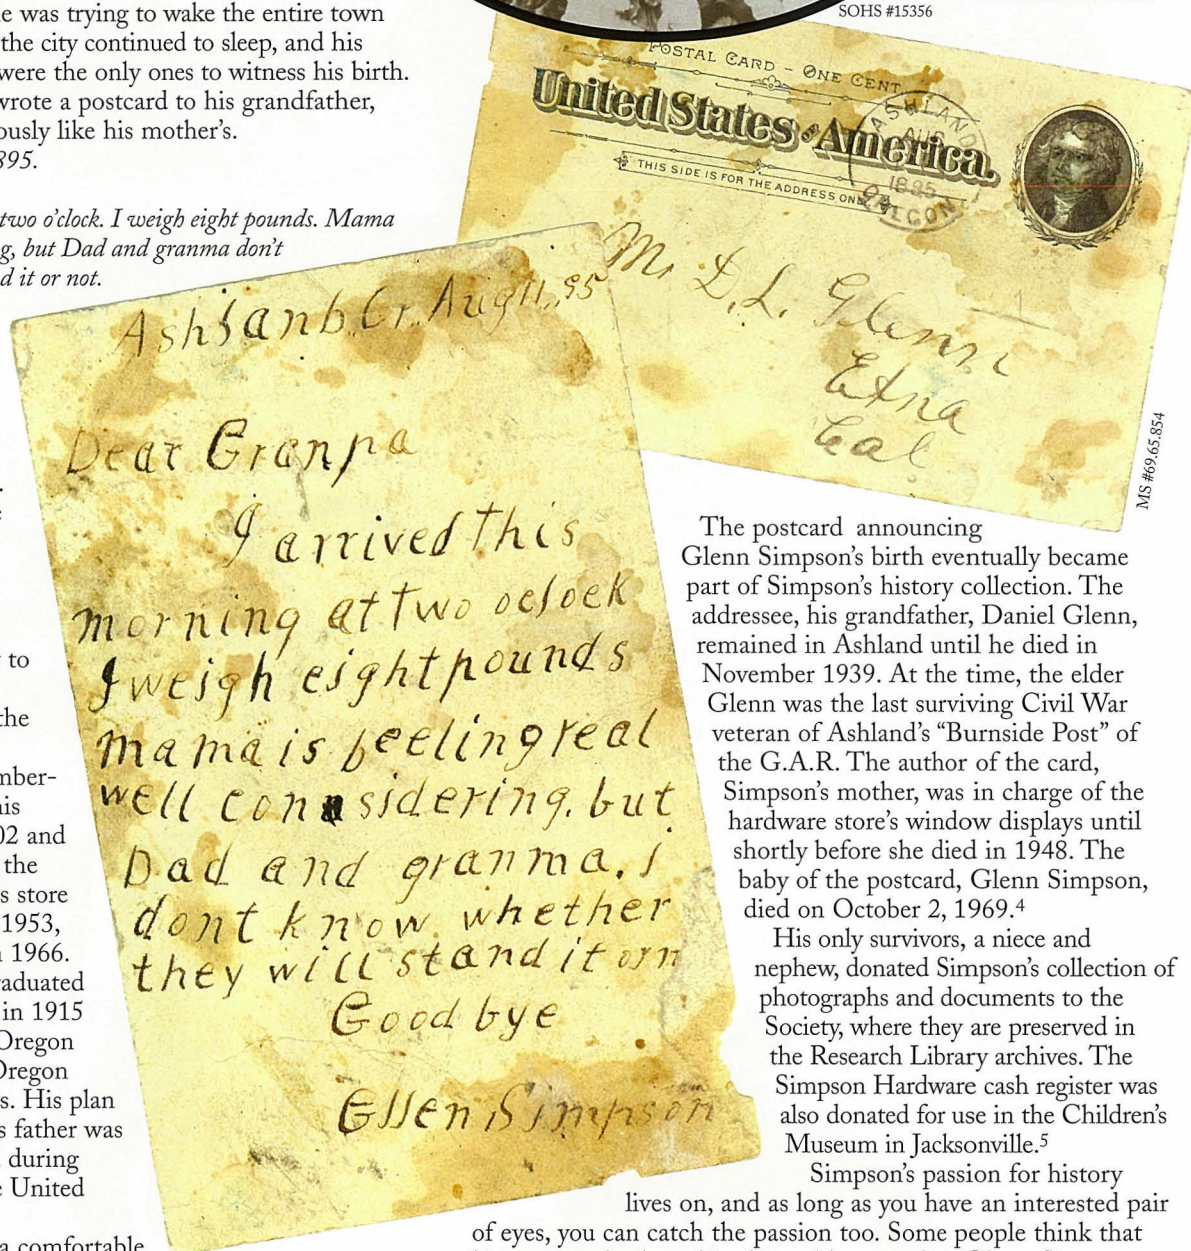 e was trying to wake the entire town
the city continued to sleep, and his
were the only ones to witness his birth.
wrote a postcard to his grandfather,
ously like his mother's.
895.
two o'clock. I weigh eight pounds. Mama
g, but Dad and granma don't
d it or not.
SOHS #15356
POSTAL CARD - ONE CENT
United States of America.
THIS SIDE IS FOR THE ADDRESS ONLY
ASHLAND
AUG
1895
OREGON
Mr D. L. Glenn
Etna
Cal
1
MS #69.65.854
Ashland, Or, Aug 11, 95
Dear Granpa
I arrived this
morning at two oclock
I weigh eight pounds
mama is feeling real
well considering, but
Dad and granma, I
dont know whether
they will stand it orn
Good bye
Simpson
to
the
mber-
his
02 and
the
s store
1953,
1966.
raduated
in 1915
Oregon
Oregon
s. His plan
s father was
during
e United
a comfortable
The postcard announcing
Glenn Simpson's birth eventually became
part of Simpson's history collection. The
addressee, his grandfather, Daniel Glenn,
remained in Ashland until he died in
November 1939. At the time, the elder
Glenn was the last surviving Civil War
veteran of Ashland's “Burnside Post” of
the G.A.R. The author of the card,
Simpson's mother, was in charge of the
hardware store's window displays until
shortly before she died in 1948. The
baby of the postcard, Glenn Simpson,
died on October 2, 1969.4
His only survivors, a niece and
nephew, donated Simpson's collection of
photographs and documents to the
Society, where they are preserved in
the Research Library archives. The
Simpson Hardware cash register was
also donated for use in the Children's
Museum in Jacksonville.5
Simpson's passion for history
lives on, and as long as you have an interested pair
of eyes, you can catch the passion too. Some people think that